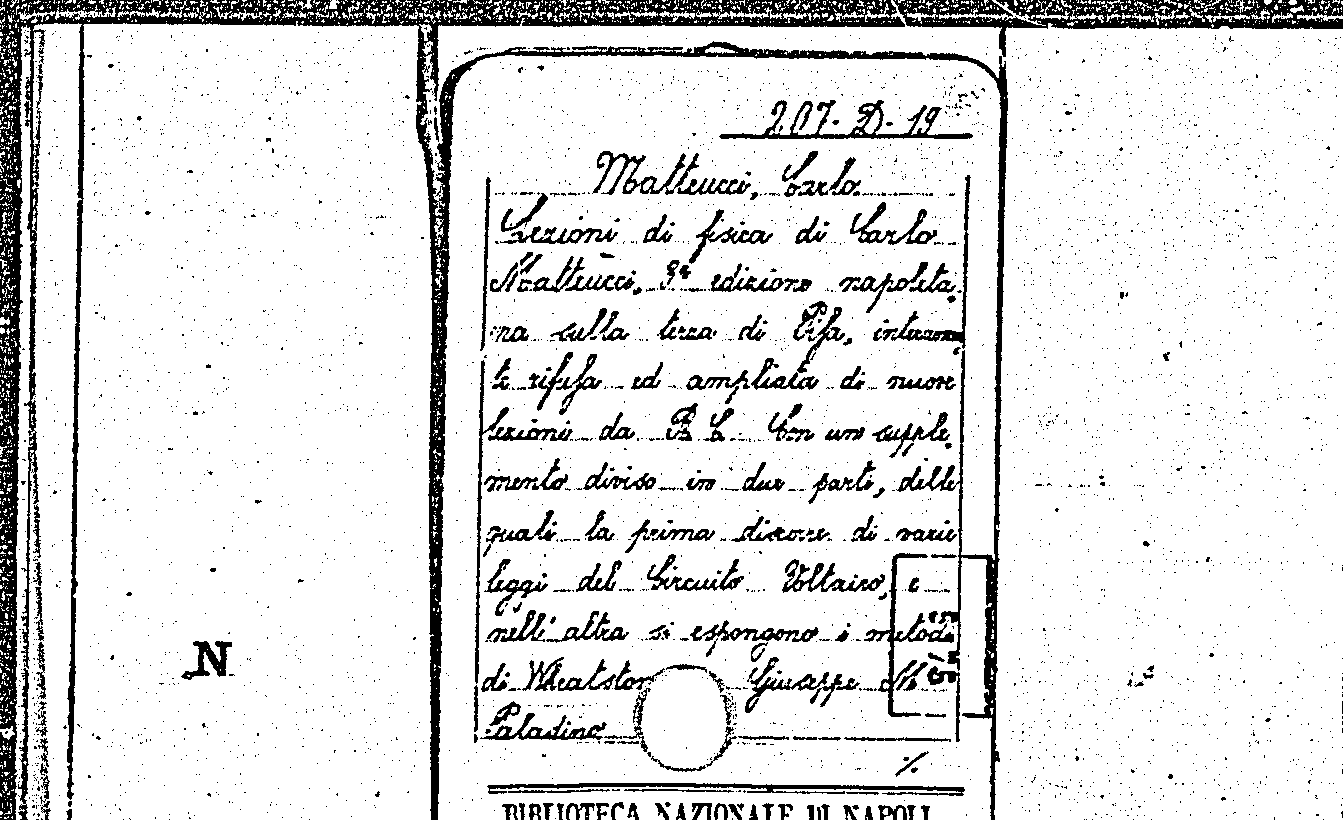 207-D-19
Matteucci, Carlo.
Lezioni di fisica di Carlo
Matteucci, 3ª edizione napoleta-
na sulla terza di Pisa, interamen-
te rifusa ed ampliata di nuove
lezioni da P. C. Con un supple-
mento diviso in due parti, delle
quali la prima discorre di varie
leggi del Circuito Voltaico, e
nell'altra si espongono i metodi
di Wheatston Giuseppe M.
Paladino
%
BIBLIOTECA NAZIONALE DI NAPOLI
N